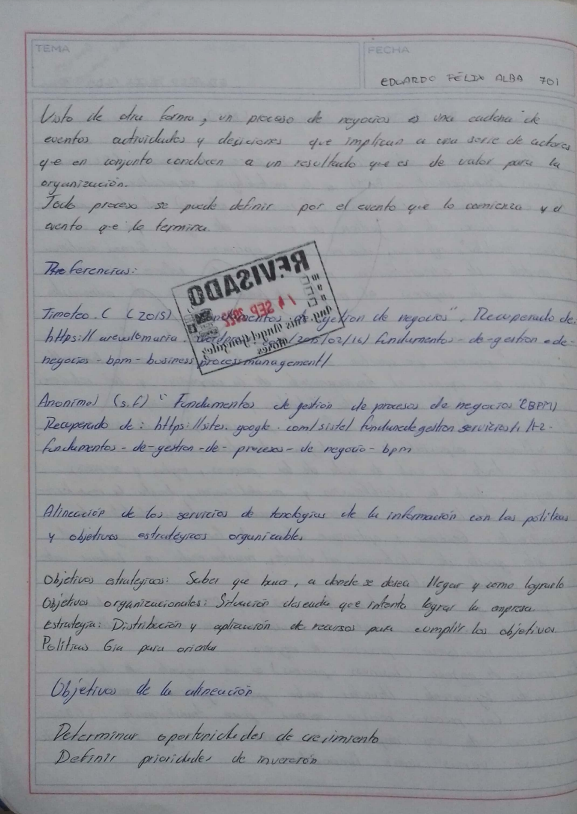 TEMA
FECHA
EDUARDO FÉLIX ALBA 701
Visto de otra forma, un proceso de negocios es una cadena de
eventos actividades y desiciones que implican a una serie de actores
que en conjunto concluen a un resultado que es de valor para la
organización.
Todo proceso se puede definir por el evento que lo comienza y el
evento que lo termina.
Referencias:
REVISADO
SEP 2022
Timoteo. C (2015) gestion de negocios". Recuperado de
https:// fundamentos - de - gestion - de -
negocios - bpm - business process management/
Anonimo (s.f) "Fundamentos de gestión de procesos de negocios (BPM)
Recuperado de: https://sites.google.com/
fundamentos - de - gestion - de - procesos - de negocio - bpm
Alineación de los servicios de tenologias de la información con las politicas
y objetivos estratégicos
Objetivos estrategicos: Saber que hace, a donde se desea llegar y como lograrlo
Objetivos organizacionales: Situación deseada que intenta lograr la empresa
Estrategia: Distribución y aplicación de recursos para cumplir los objetivos
Politicas Gia para orientar
Objetivos de la alineación
Determinar oportunidades de crecimiento
Definir prioridades de inversión